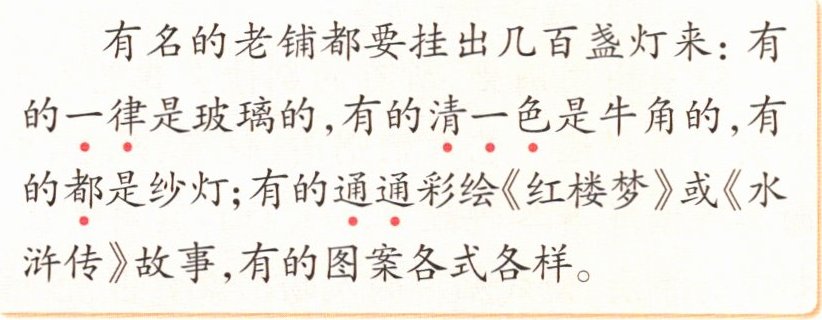 有名的老铺都要挂出几百盏灯来：有
的一律是玻璃的，有的清一色是牛角的，有
的都是纱灯；有的通通彩绘《红楼梦》或《水
浒传》故事，有的图案各式各样。